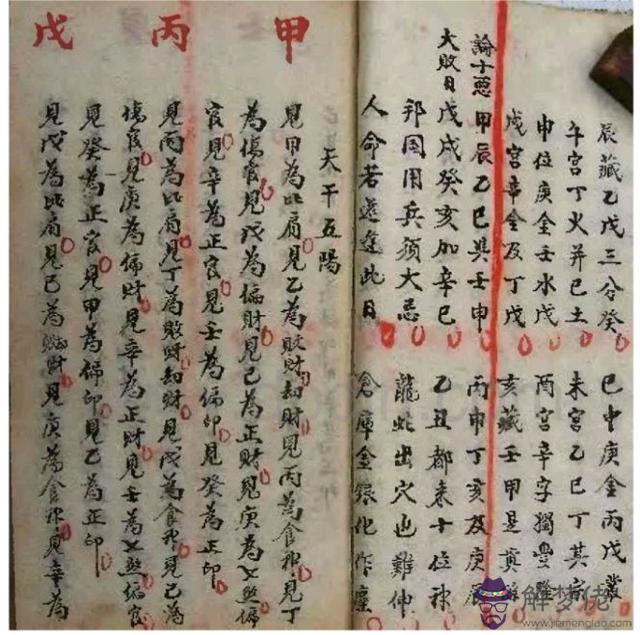 辰藏乙戊三分癸 巳中庚金丙戊叢
午宮丁火并己土 未宮乙己丁其宗
申位庚金壬水戊 酉宮辛字獨豐隆
戌宮辛金及丁戊 亥藏壬甲是真
論十惡 甲辰乙巳與壬申 丙申丁亥及庚辰
大敗日 戊戌癸亥加辛巳 乙丑都來十位神
邦国用兵須大忌 龍蛇出穴也難伸
人命若還逢此日 倉庫金銀化作塵
天干五陽
甲
見甲為比肩見乙為敗財劫財見丙為食神見丁
為傷官見戊為偏財見己為正財見庚為七煞偏
官見辛為正官見壬為偏印見癸為正印
丙
見丙為比肩見丁為敗財劫財見戊為食神見己為
傷官見庚為偏財見辛為正財見壬為七煞偏官
見癸為正官見甲為偏印見乙為正印
戊
見戊為比肩見己為財見庚為食神見辛為
解梦佬
www.jiemenglao.com